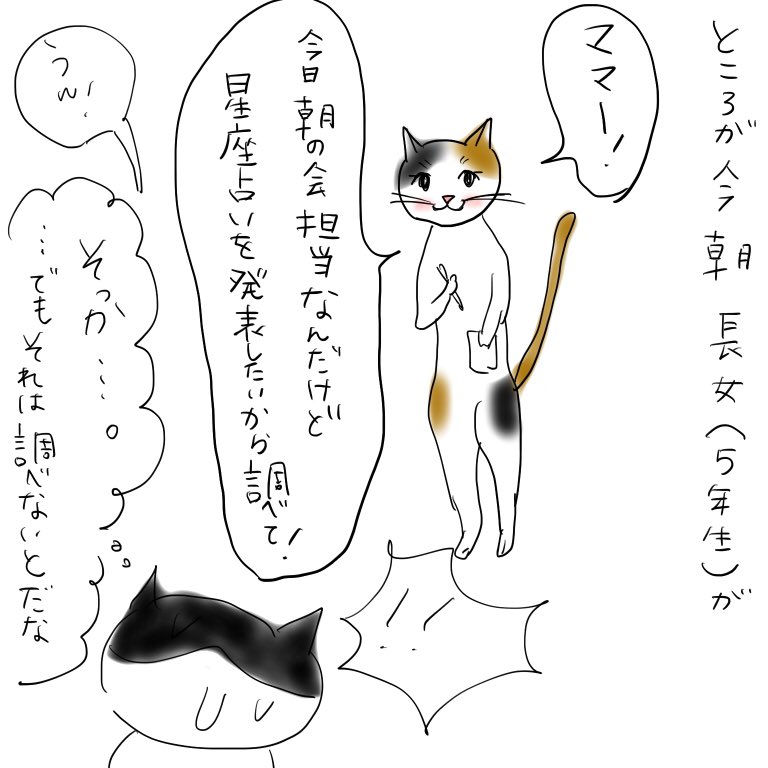 ところが今朝 長女(5年生)が
ママー!
今日 朝の会 担当なんだけど
星座占いを発表したいから調べて!
うん!
そっか…
…でもそれは調べないとだな